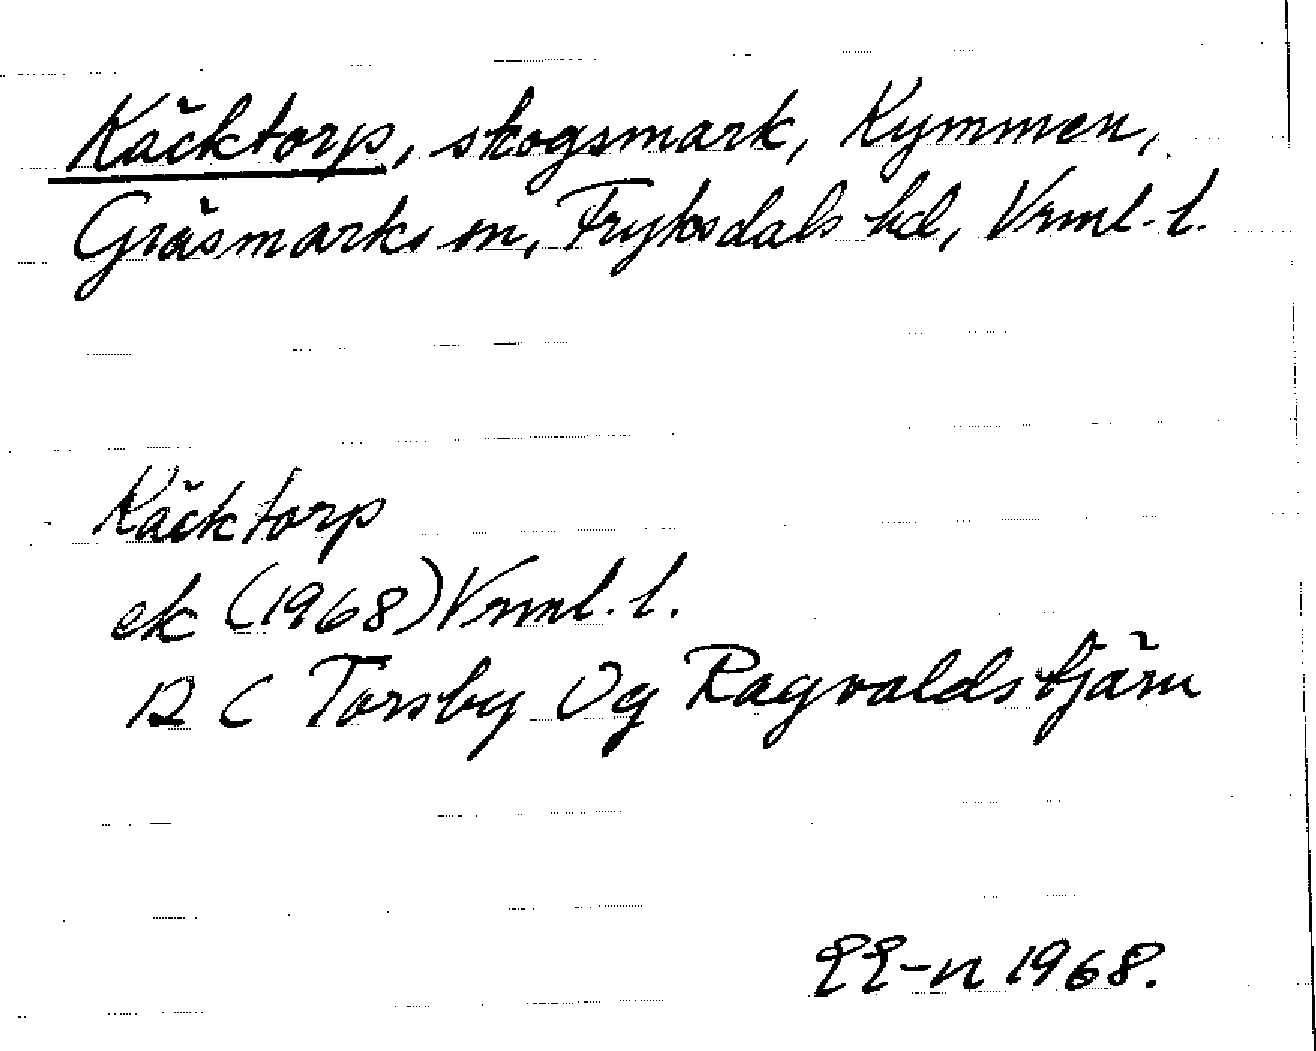 Käcktorp, skogsmark, Kymmen,
Gräsmarks sn, Fryksdals hd, Vrml. l.
Käcktorp
ek (1968) Vrml. l.
12 C Torsby Og Ragvaldstjärn
EE-n 1968.